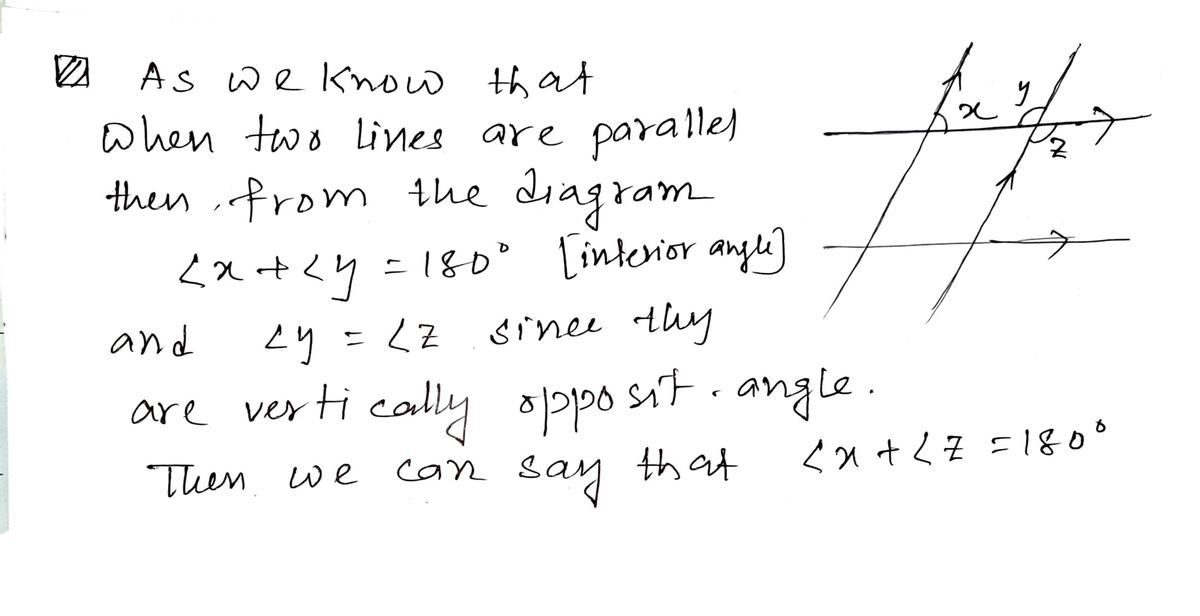 As we know that
When two lines are parallel
then, from the diagram
x y
z
∠x + ∠y = 180° [interior angle]
and ∠y = ∠z since thy
are vertically opposit. angle.
Then we can say that ∠x + ∠z = 180°